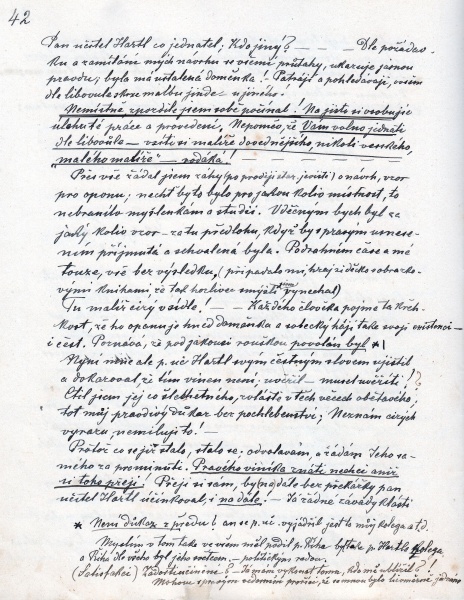 42
Pan učitel Hartl co jednatel; Kdo jiný? — — — Dle požadav-
ku a zamítání mých návrhu se všemi průtahy, ukazuje jasnou
pravdu; byla má ustálená doměnka! Patrájí a pohledávají, ovšem
dle libovule skrze malbu jinde — u jiného!
Nemístně zpozdile jsem sobě počínal! Na jisto si osobujíc
úlohu té práce a provedení. Nepomóc, že Vám volno jednáti
dle libovůle — vzíti si malíře dovednějšího, nikoli venského,
„malého malíře" — rodáka!
Přes vše žádel jsem záhy (po prodeji star. jeviště) o návrh, vzor
pro oponu; nechť byto bylo pro jaskou koliv místnost, to
nebranilo myšlenkám a studii. Vděčným bych byl za
jaký koliv vzor — za tu předlohu, když by s pravým usnese-
ním přijmutá a schválená byla. Po drahném čase a mé
touze, vše bez výsledku, (připadalo mi, hraj si děcko s obrázko-
vými knihami, že tak horlivec smýšlí vynechal)
Tu malíř čirý v sídle! — Každého člověka pojme ta křeh-
kost, že ho opanuje hned doměnka a sobecky hájí také svoji existenci —
i čest. Poznává, že pod jakousi rouškou povolán byl *)
Nyní mně ale p. uč Hartl svým čestným slovem ujistil
a dokazoval, že tím vinen není; uvěřil — musel uvěřiti.!?
Ctil jsem jej co šlechetného, zvláště v těch věcech obětavého;
toť můj pravdivý důkaz bez pochlebenství; Neznám cizých
výrazu, nemiluji to! —
Protož co se již stalo, stalo se; odvolávám, a žádám Jeho sa-
mého za prominutí. Pravého viníka znáti nechci aniž
si toho přeji! Přeji si sám, by (na) dalo bez překážky pan
učitel Hartl účinkoval, i na dále! — Já žádné závady klásti
* Není důkaz z předu!, an se p. uč. vyjádřil jest to můj kolega a t.d.
Myslím v tom také ve všem měl podíl p. Řiha býv. také p. Hartla kolega,
a Řiha dle všeho byl jeho svetcem — politickým radou;
(Satisfakcí) Zadostiučinění? — Já mám vykonat tomu, kdo mě ublížil?!
Mohou s pravým vědomím proséci, že se mnou bylo